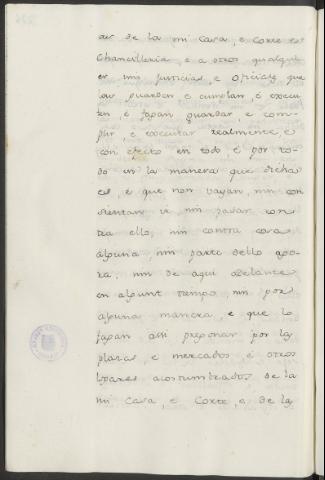 des de la mi Casa, e Corte e
Chancilleria, e a otros qualqui
er mis justicias, e oficiales que
los guarden e cumplan, e execu
ten, e fagan guardar, e com-
plir, e executar realmente, e
con efecto en todo e por to-
do en la manera que dicha
es, e que non vayan, nin con
sientan ir, nin pasar con
tra ello, nin contra cosa
alguna, nin parte dello ago-
ra, nin de aqui adelante
en algunt tiempo, nin por
alguna manera, e que lo
fagan asi pregonar por las
plazas, e mercados, e otros
lugares acostumbrados de la
mi Casa, e Corte, e de las